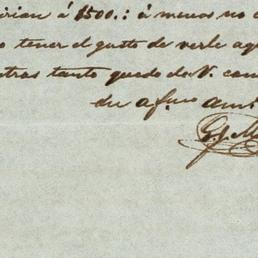 irian á 1500.: á menos no c
o tener el gusto de verle aq
ntras tanto quedo de V. com
su afmo ami